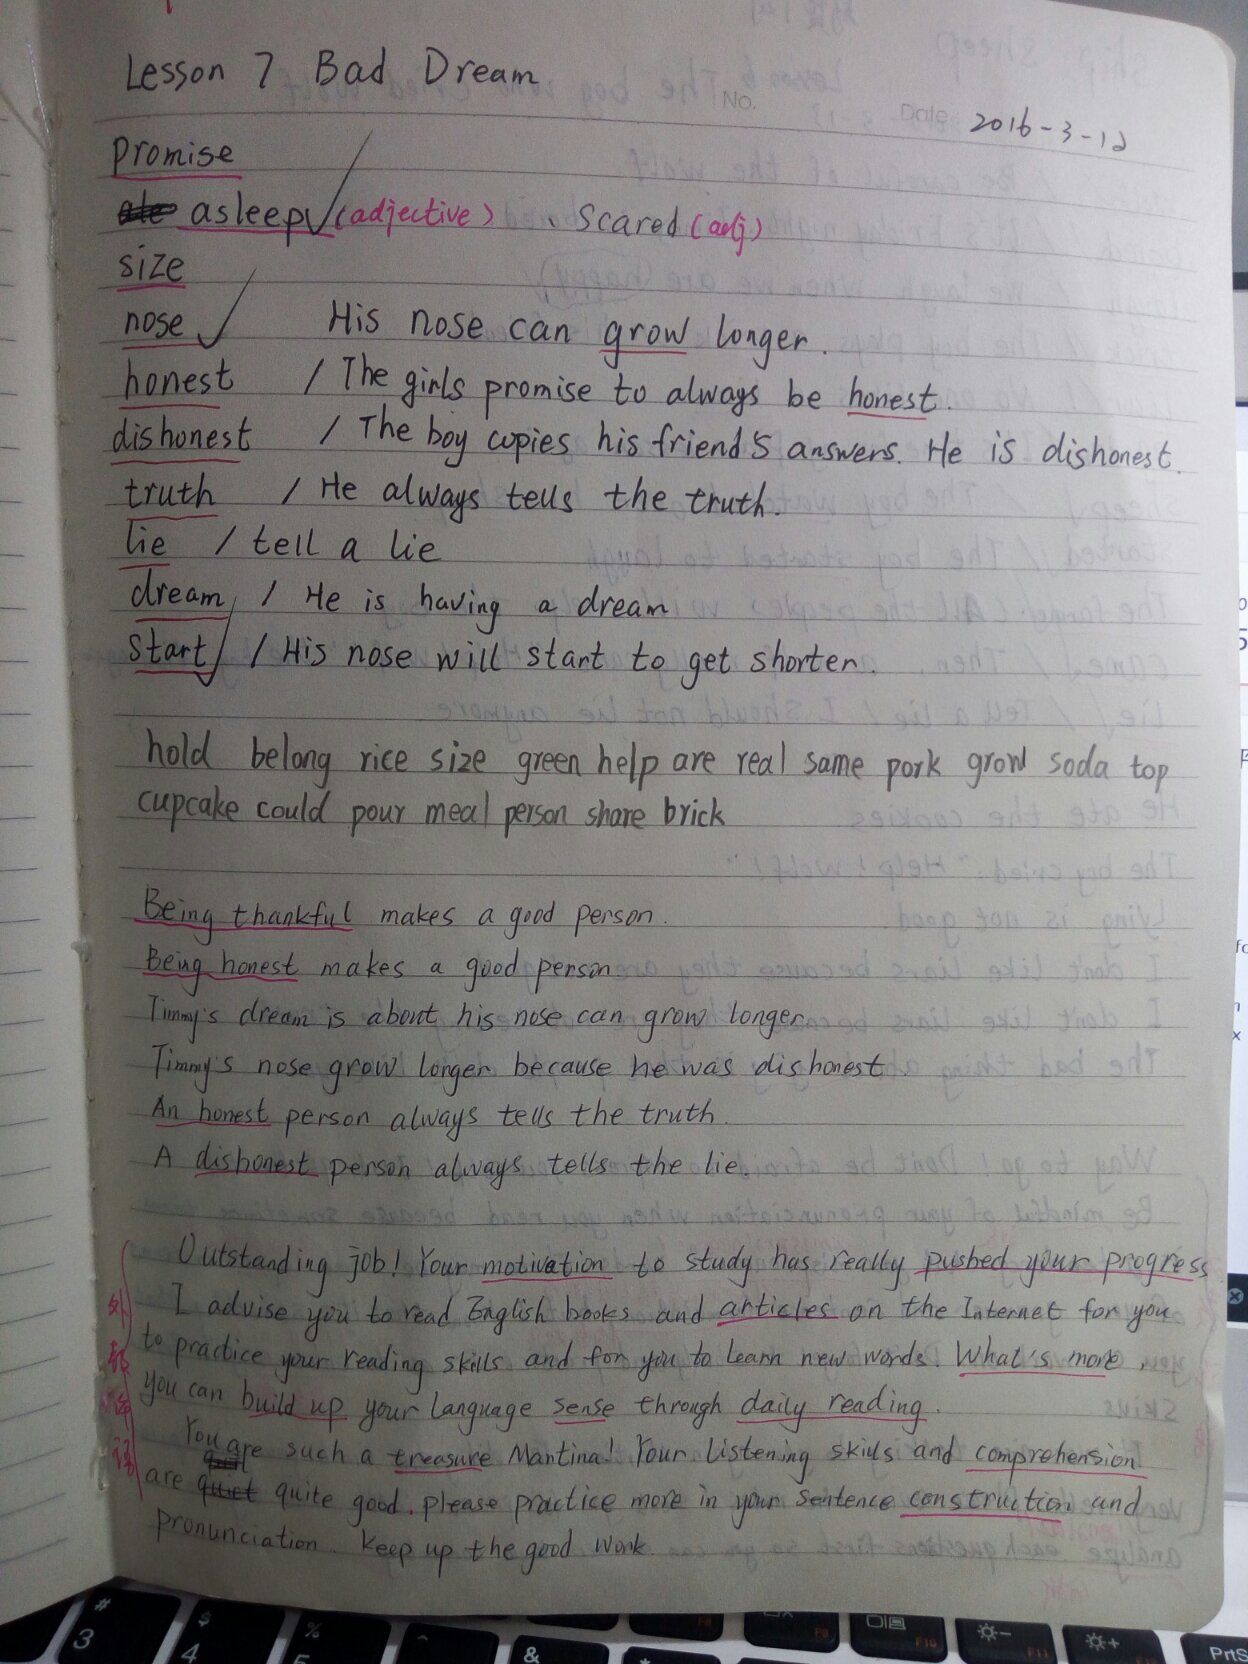 Lesson 7 Bad Dream
No.
Date 2016-3-12
promise
asleep (adjective) 、 Scared (adj)
size
nose His nose can grow longer.
honest / The girls promise to always be honest.
dishonest / The boy copies his friend's answers. He is dishonest.
truth / He always tells the truth.
lie / tell a lie
dream / He is having a dream
start / His nose will start to get shorter.
hold belong rice size green help are real same pork grow soda top
cupcake could pour meal person share brick
Being thankful makes a good person.
Being honest makes a good person
Timmy's dream is about his nose can grow longer
Timmy's nose grow longer because he was dishonest
An honest person always tells the truth.
A dishonest person always tells the lie.
Outstanding job! Your motivation to study has really pushed your progress
I advise you to read English books and articles on the Internet for you
to practice your reading skills and for you to learn new words. What's more,
you can build up your language sense through daily reading.
You are such a treasure Mantina! Your listening skills and comprehension
are quiet quite good. please practice more in your sentence construction and
pronunciation. keep up the good work.
# 3
$ 4
% 5
&
F9
F10
F11
F12
PrtS